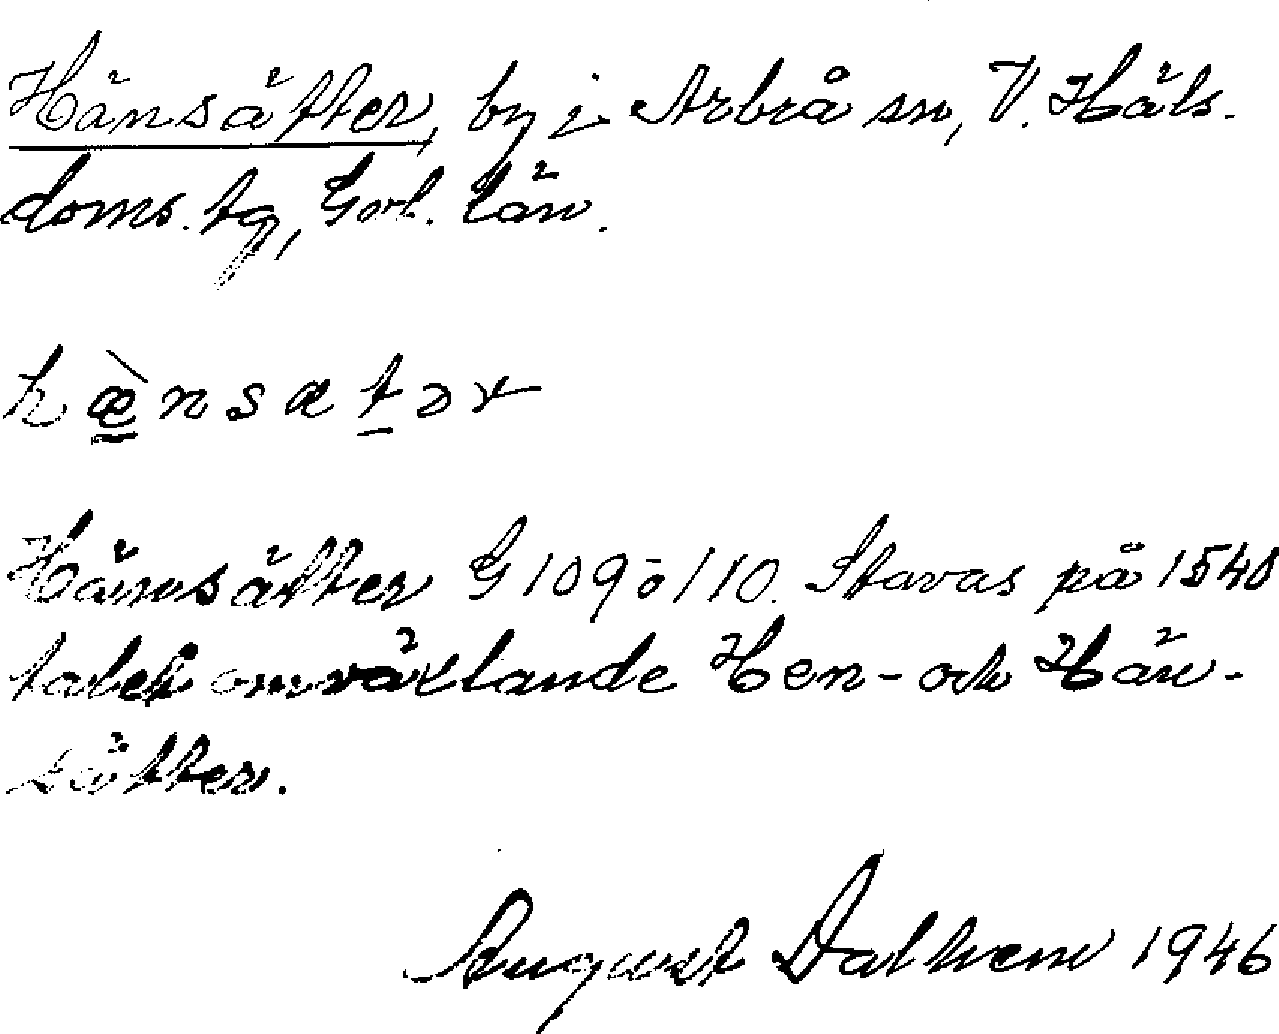 Hänsätter, by i Arbrå sn, V. Häls.
doms. tg, Gvl. län.
hæ̀nsætər
Hänsätter G 109 ö 110. Stavas på 1540
talet omväxlande Hen- och Hän-
sätter.
August Dalhem 1946